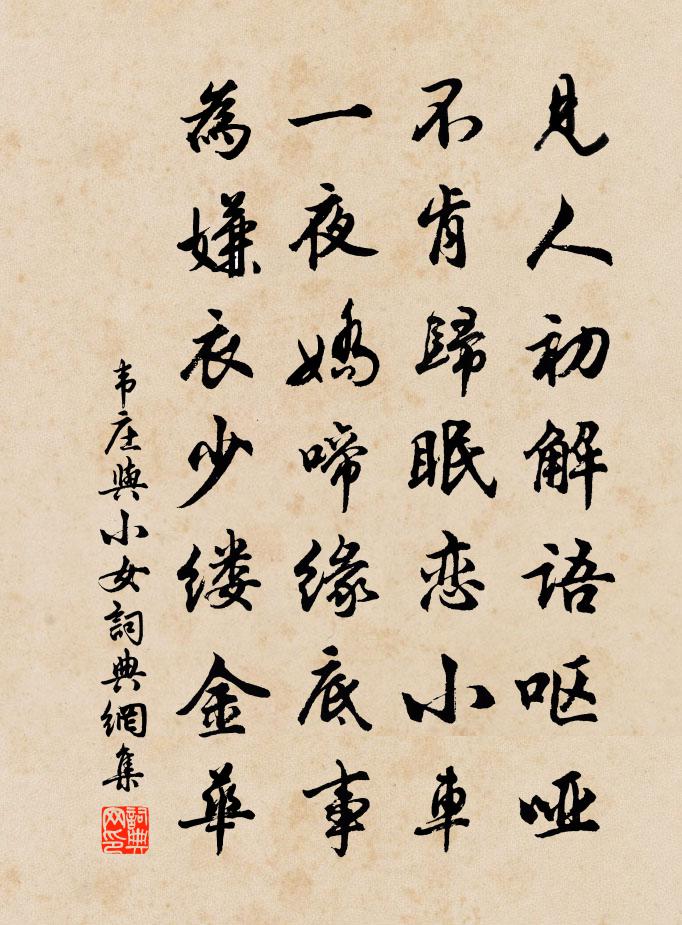 見人初解語呕哑
不肯歸眠恋小車
一夜嬌啼缘底事
為嫌衣少缕金華
韦庄與小女詞典網集
詞典网印